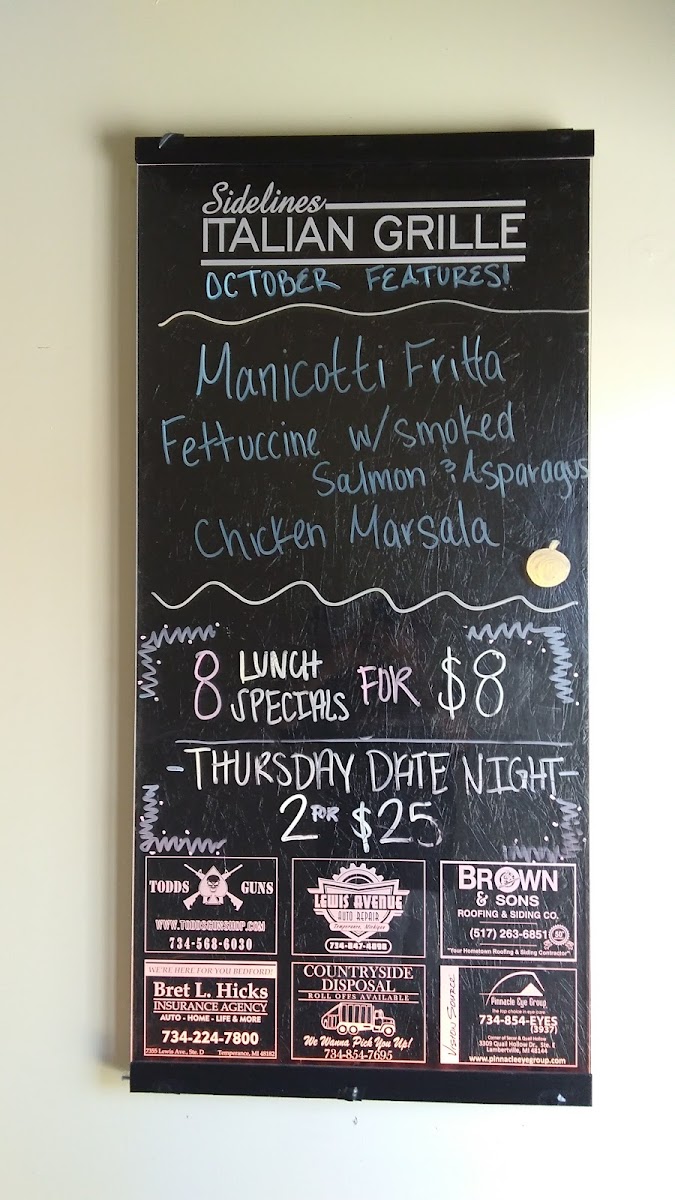 Sidelines
ITALIAN GRILLE
OCTOBER FEATURES!
Manicotti Fritta
Fettuccine w/smoked
Salmon & Asparagus
Chicken Marsala
8 LUNCH SPECIALS FOR $8
-THURSDAY DATE NIGHT-
2 FOR $25
TODDS GUNS
WWW.TODDSGUNSHOP.COM
734-568-6030
LEWIS AVENUE
AUTO REPAIR
Temperance, Michigan
734-847-4898
BROWN
& SONS
ROOFING & SIDING CO.
(517) 263-6851
"Your Hometown Roofing & Siding Contractor"
WE'RE HERE FOR YOU BEDFORD!
Bret L. Hicks
INSURANCE AGENCY
AUTO - HOME - LIFE & MORE
734-224-7800
7355 Lewis Ave., Ste. D Temperance, MI 48182
COUNTRYSIDE
DISPOSAL
ROLL OFFS AVAILABLE
We Wanna Pick You Up!
734-854-7695
VISION SOURCE
Pinnacle Eye Group
The top choice in eye care
734-854-EYES
(3937)
Corner of Secor & Quail Hollow
3309 Quail Hollow Dr., Ste. E
Lambertville, MI 48144
www.pinnacleeyegroup.com